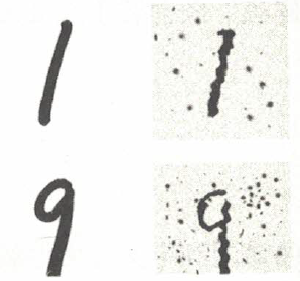 1 1
9 9